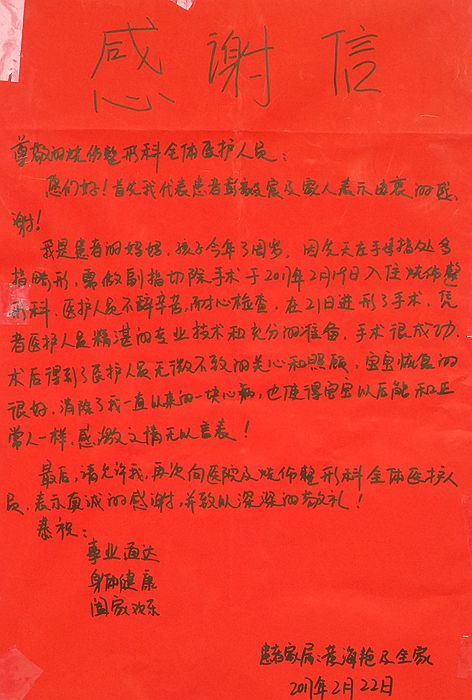 感谢信
尊敬的烧伤整形科全体医护人员：
您们好！首先我代表患者彭及家人表示由衷的感
谢！
我是患者的妈妈，孩子今年7周岁，因先天左手拇指处多
指畸形，需做副指切除手术于2019年2月19日入住烧伤整
形科，医护人员不辞辛苦，耐心检查，在21日进形了手术，凭
着医护人员精湛的专业技术和充分的准备，手术很成功，
术后得到了医护人员无微不致的关心和照顾，宝宝恢复的
很好，消除了我一直以来的一块心病，也值得宝宝以后能和正
常人一样，感激之情无以言表！
最后，请允许我，再次向医院及烧伤整形科全体医护人
员，表示真诚的感谢，并致以深深的敬礼！
恭祝：
事业通达
身体健康
阖家欢乐
患者家属：黄海艳及全家
2019年2月22日